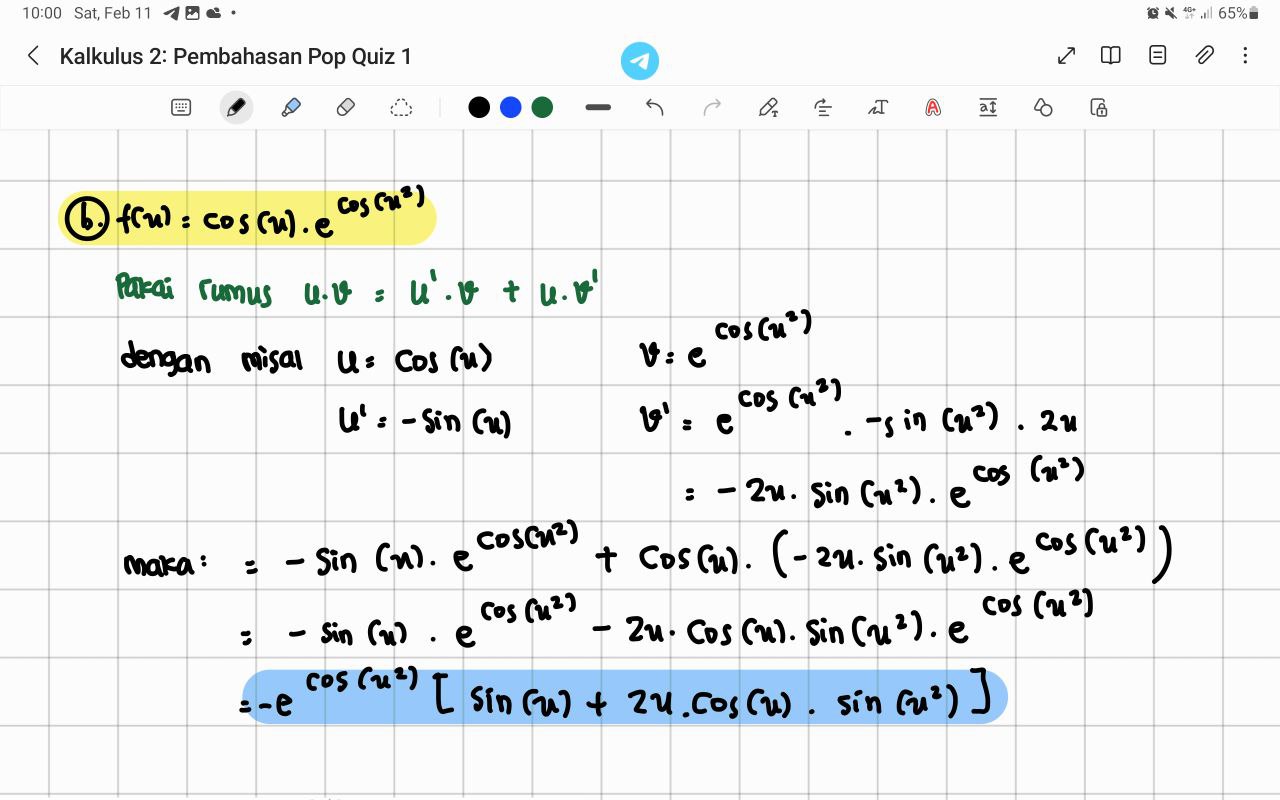 10:00 Sat, Feb 11 4G+ 65%
Kalkulus 2: Pembahasan Pop Quiz 1
b. f(x) = cos(x) . e^cos(x²)
Pakai rumus u.v = u'.v + u.v'
dengan misal u = cos(x) v = e^cos(x²)
u' = -sin(x) v' = e^cos(x²) . -sin(x²) . 2x
= -2x. sin(x²). e^cos(x²)
maka: = -sin(x). e^cos(x²) + cos(x). (-2x. sin(x²). e^cos(x²))
= -sin(x) . e^cos(x²) - 2x. cos(x). sin(x²). e^cos(x²)
= -e^cos(x²) [sin(x) + 2x .cos(x) . sin(x²)]